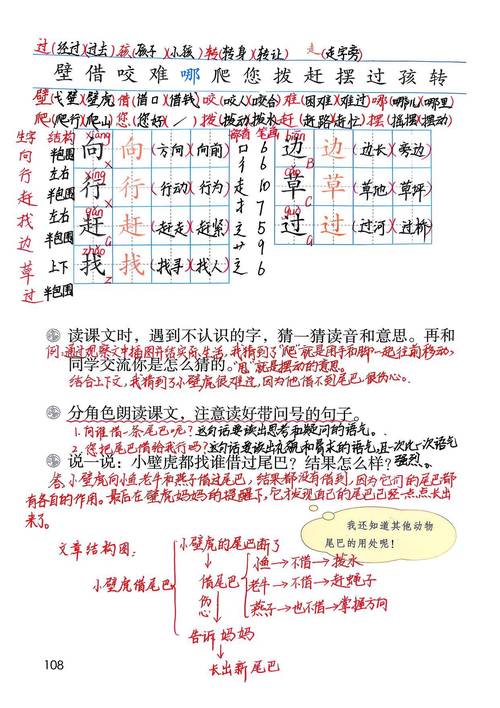 过(经过)(过去)孩(孩子)(小孩)转(转身)(转让) 辶(走字旁)
壁借咬难哪爬您拨赶摆过孩转
壁(戈壁)(壁虎)借(借口)(借钱)咬(咬人)(咬合)难(困难)(难过)哪(哪儿)(哪里)
爬(爬行)(爬山)您(您好)( / )拨(拨动)(拨水)赶(赶路)(赶忙)摆(摇摆)(摆动)
生字 结构 部首 笔画
向 半包围 xiàng 向 向 (方向)(向前) 口 6
行 左右 行 行 (行动)(行为) 彳 6
赶 半包围 gǎn 赶 赶 (赶走)(赶紧) 走 10
找 左右 zhǎo 找 找 (找寻)(找人) 扌 7
边 半包围 biān 边 边 (边长)(旁边) 辶 5
草 上下 cǎo 草 草 (草地)(草坪) 艹 9
过 半包围 guò 过 过 (过河)(过桥) 辶 6
读课文时，遇到不认识的字，猜一猜读音和意思。再和
例：通过观察文中插图并结实际生活，我猜到了“爬”就是用手和脚一起往前移动，
同学交流你是怎么猜的。“甩”就是摆动的意思。
结合上下文，我猜到了小壁虎很难过，因为他借不到尾巴，很伤心。
分角色朗读课文，注意读好带问号的句子。
1.向谁借一条尾巴呢？这句话要读出思考和疑问的语气。
2.您把尾巴借给我行吗？这句话要读出礼貌和寻求的语气，且一次比一次语气
说一说：小壁虎都找谁借过尾巴？结果怎么样？强烈。
答：小壁虎向小鱼老牛和燕子借过尾巴，结果都没有借到，因为它们的尾巴都
有各自的作用。最后在壁虎妈妈的提醒下，它发现自己的尾巴已经一点点长出
来了。
我还知道其他动物
尾巴的用处呢！
文章结构图：
小壁虎借尾巴
小壁虎的尾巴断了
借尾巴
小鱼→不借→拨水
老牛→不借→赶蝇子
燕子→也不借→掌握方向
伤心
告诉妈妈
长出新尾巴
108